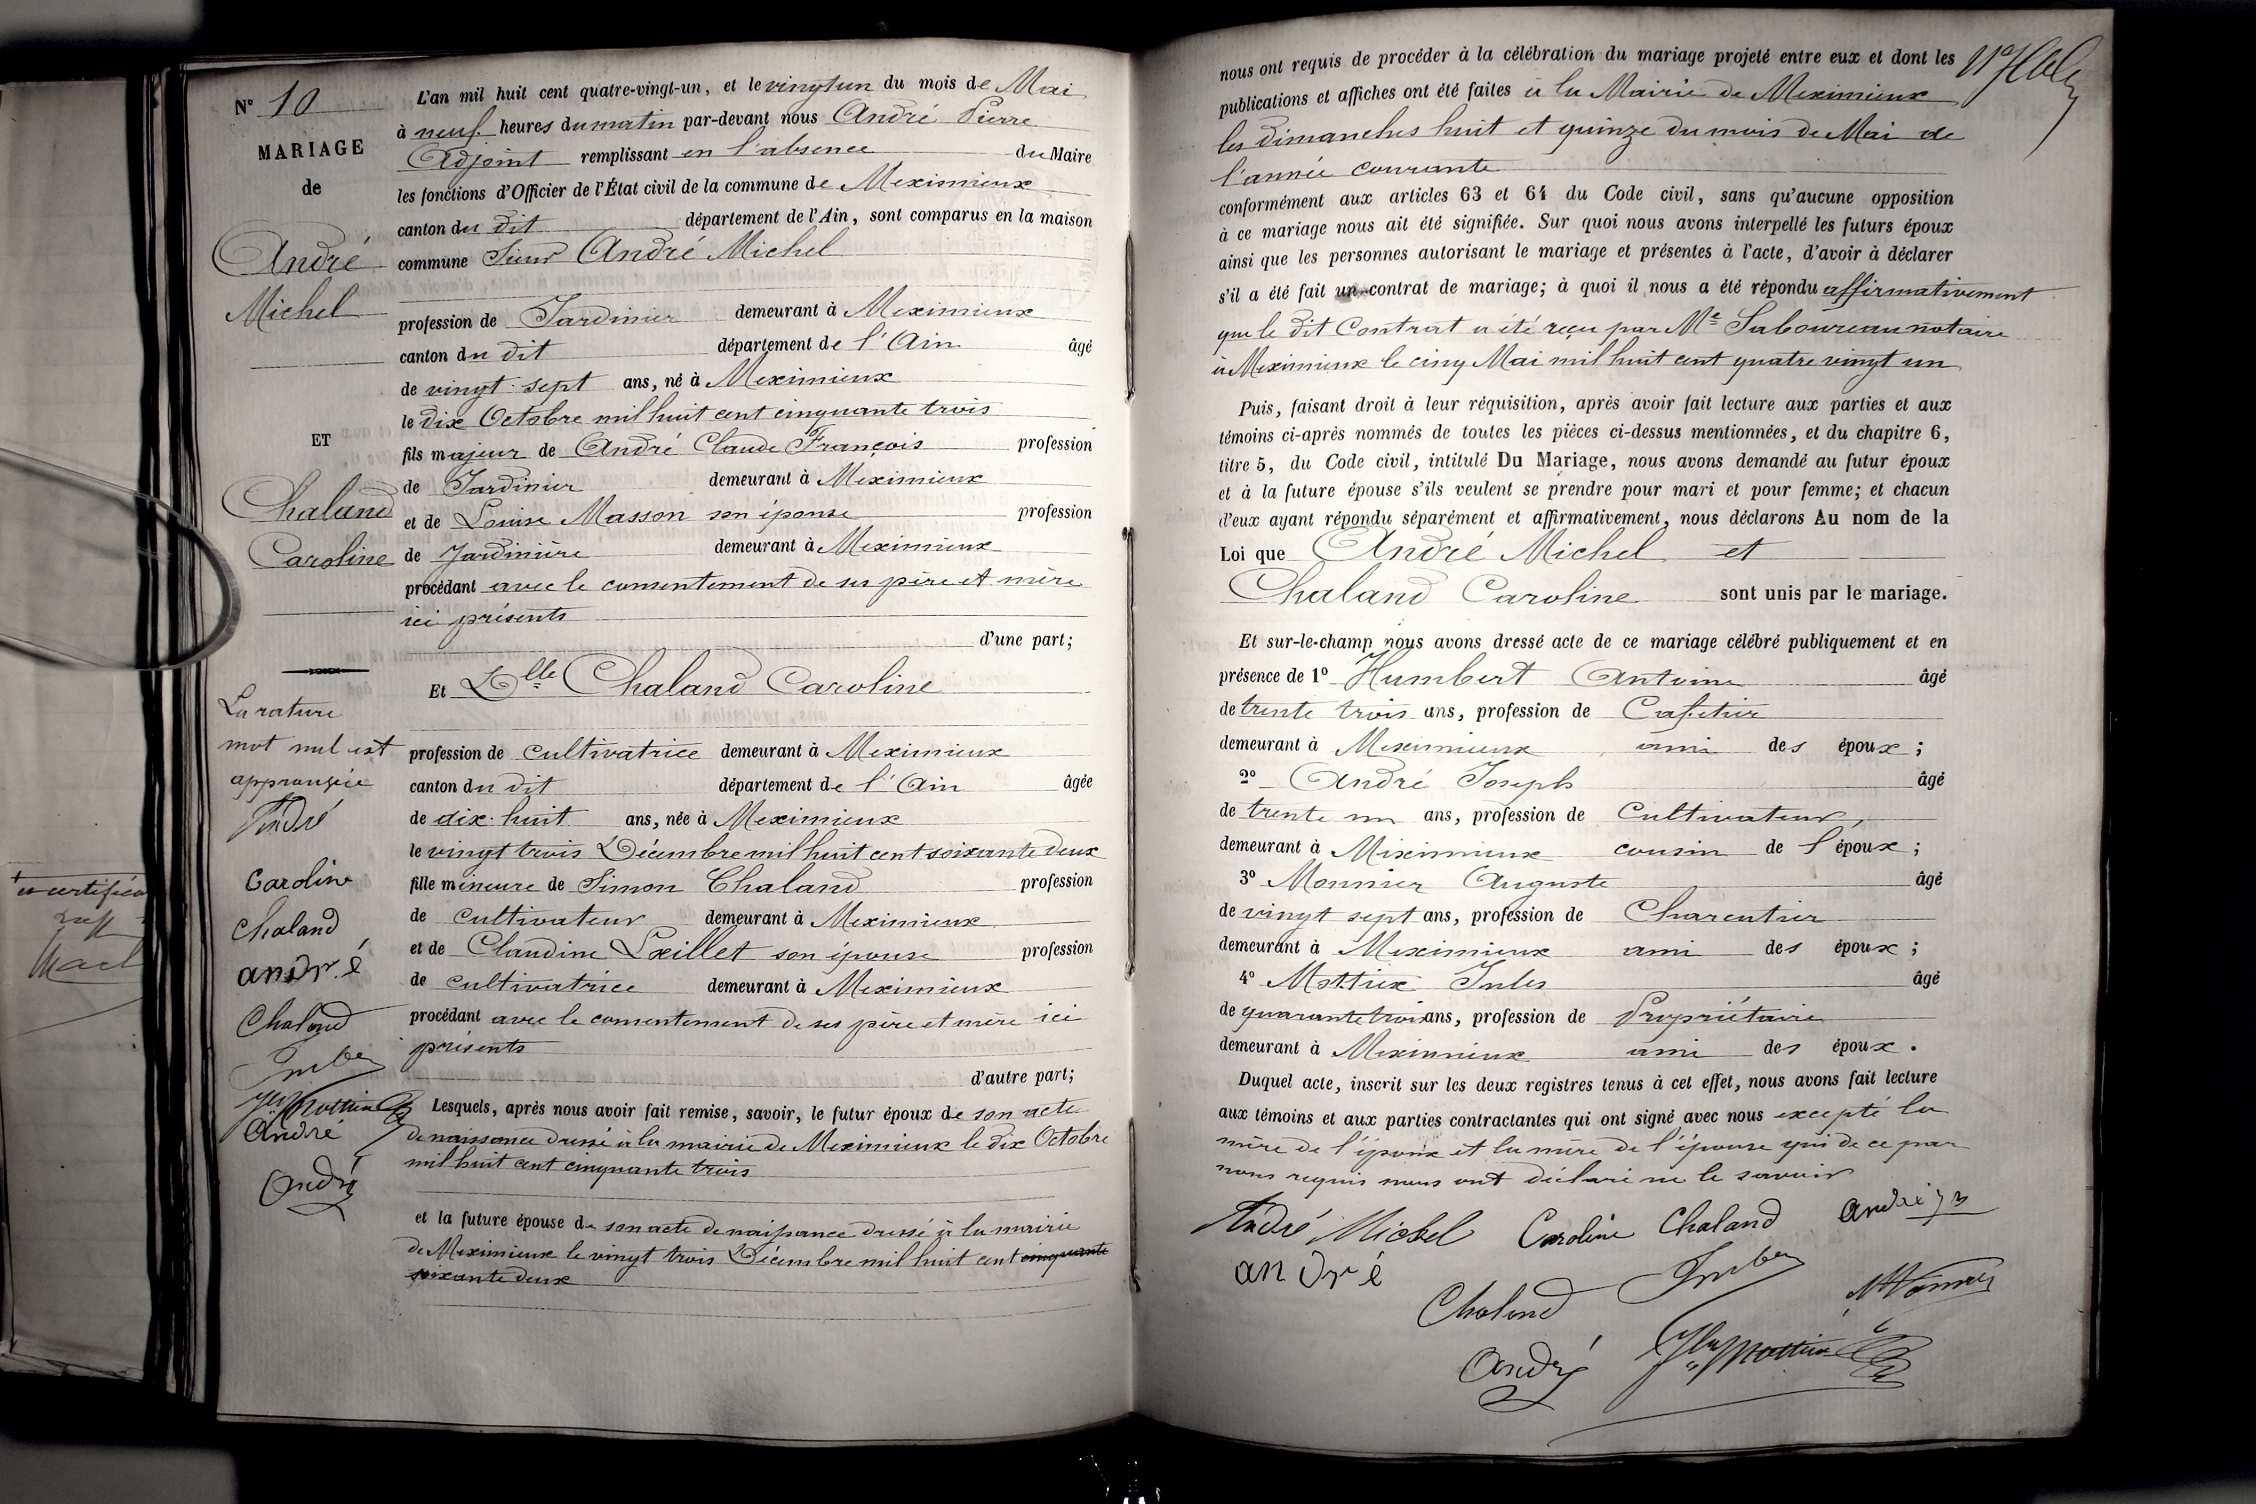 N° 10
MARIAGE
de
André
Michel
ET
Chaland
Caroline
La rature
mot nul est
approuvée
André
Caroline
Chaland
andré
Chaland
André
André
L'an mil huit cent quatre-vingt-un, et le vingt un du mois de Mai
à neuf heures du matin par-devant nous André Pierre
Adjoint remplissant en l'absence du Maire
les fonctions d'Officier de l'État civil de la commune de Meximieux
canton du dit département de l'Ain, sont comparus en la maison
commune Sieur André Michel
profession de Jardinier demeurant à Meximieux
canton du dit département de l'Ain âgé
de vingt-sept ans, né à Meximieux
le dix Octobre mil huit cent cinquante trois
fils majeur de André Claude François profession
de Jardinier demeurant à Meximieux
et de Louise Masson son épouse profession
de Jardinière demeurant à Meximieux
procédant avec le consentement de ses père et mère
ici présents
d'une part;
Et Dlle Chaland Caroline
profession de cultivatrice demeurant à Meximieux
canton du dit département de l'Ain âgée
de dix-huit ans, née à Meximieux
le vingt trois Décembre mil huit cent soixante deux
fille mineure de Simon Chaland profession
de cultivateur demeurant à Meximieux
et de Claudine son épouse profession
de cultivatrice demeurant à Meximieux
procédant avec le consentement de ses père et mère ici
présents
d'autre part;
Lesquels, après nous avoir fait remise, savoir, le futur époux de son acte
de naissance dressé à la mairie de Meximieux le dix Octobre
mil huit cent cinquante trois
et la future épouse de son acte de naissance dressé à la mairie
de Meximieux le vingt trois Décembre mil huit cent cinquante
soixante deux
nous ont requis de procéder à la célébration du mariage projeté entre eux et dont les
publications et affiches ont été faites à la Mairie de Meximieux
les dimanches huit et quinze du mois de Mai de
l'année courante
conformément aux articles 63 et 64 du Code civil, sans qu'aucune opposition
à ce mariage nous ait été signifiée. Sur quoi nous avons interpellé les futurs époux
ainsi que les personnes autorisant le mariage et présentes à l'acte, d'avoir à déclarer
s'il a été fait un contrat de mariage; à quoi il nous a été répondu affirmativement
que le dit Contrat a été reçu par Me Saboureau notaire
à Meximieux le cinq Mai mil huit cent quatre vingt un
Puis, faisant droit à leur réquisition, après avoir fait lecture aux parties et aux
témoins ci-après nommés de toutes les pièces ci-dessus mentionnées, et du chapitre 6,
titre 5, du Code civil, intitulé Du Mariage, nous avons demandé au futur époux
et à la future épouse s'ils veulent se prendre pour mari et pour femme; et chacun
d'eux ayant répondu séparément et affirmativement, nous déclarons Au nom de la
Loi que André Michel et
Chaland Caroline sont unis par le mariage.
Et sur-le-champ nous avons dressé acte de ce mariage célébré publiquement et en
présence de 1° Humbert Antoine âgé
de trente trois ans, profession de Cafetier
demeurant à Meximieux ami des époux;
2° André Joseph âgé
de trente un ans, profession de Cultivateur,
demeurant à Meximieux cousin de l'époux;
3° Monnier Auguste âgé
de vingt sept ans, profession de Charcutier
demeurant à Meximieux ami des époux;
4° Jules âgé
de quarante trois ans, profession de Propriétaire
demeurant à Meximieux ami des époux.
Duquel acte, inscrit sur les deux registres tenus à cet effet, nous avons fait lecture
aux témoins et aux parties contractantes qui ont signé avec nous excepté la
mère de l'époux et la mère de l'épouse qui de ce par
nous requis nous ont déclaré ne le savoir
André Michel Caroline Chaland André
andré
Chaland
André